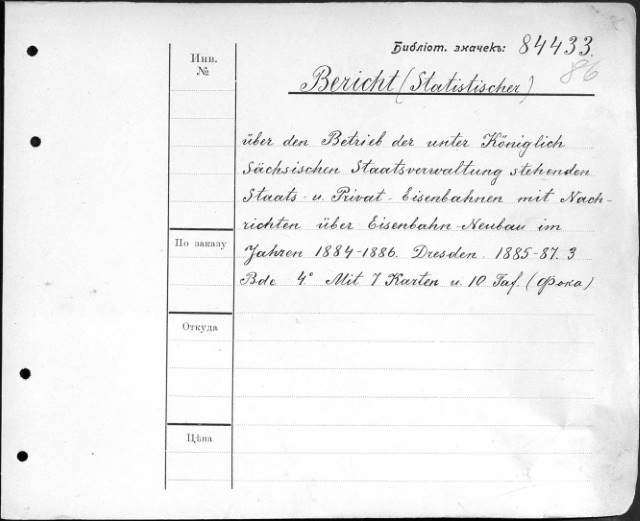 Библіот. значекъ: 84433.
86
Инв.
№
Bericht (Statistischer)
über den Betrieb der unter Königlich
Sächsischen Staatsverwaltung stehenden
Staats- u. Privat-Eisenbahnen mit Nach-
richten über Eisenbahn-Neubau im
По заказу
Jahren 1884-1886. Dresden. 1885-87. 3
Bde 4° Mit 7 Karten u. 10 Taf. (Фока)
Откуда
Цѣна